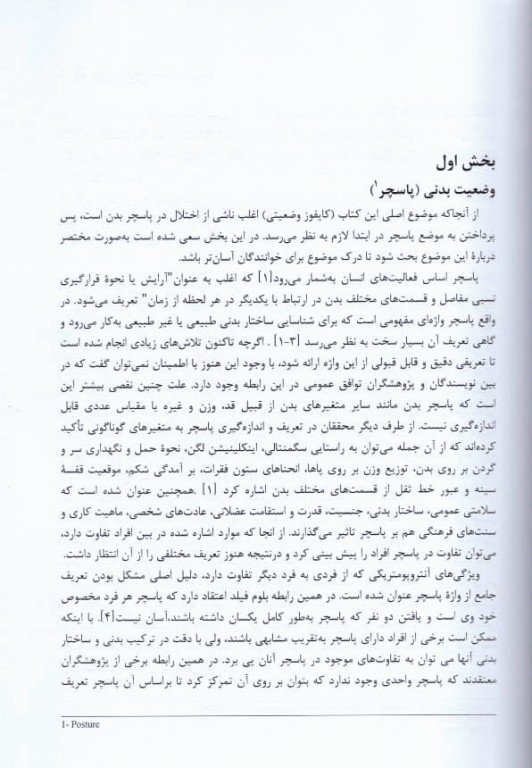 بخش اول
وضعیت بدنی (پاسچر۱)
از آنجاکه موضوع اصلی این کتاب (کایفوز وضعیتی) اغلب ناشی از اختلال در پاسچر بدن است، پس
پرداختن به موضع پاسچر در ابتدا لازم به نظر می‌رسد. در این بخش سعی شده است به‌صورت مختصر
دربارهٔ این موضوع بحث شود تا درک موضوع برای خوانندگان آسان‌تر باشد.
پاسچر اساس فعالیت‌های انسان به‌شمار می‌رود[۱] که اغلب به عنوان"آرایش یا نحوهٔ قرارگیری
نسبی مفاصل و قسمت‌های مختلف بدن در ارتباط با یکدیگر در هر لحظه از زمان" تعریف می‌شود. در
واقع پاسچر واژه‌ای مفهومی است که برای شناسایی ساختار بدنی طبیعی یا غیر طبیعی به‌کار می‌رود و
گاهی تعریف آن بسیار سخت به نظر می‌رسد [۳-۱] . اگرچه تاکنون تلاش‌های زیادی انجام شده است
تا تعریفی دقیق و قابل قبولی از این واژه ارائه شود، با وجود این هنوز با اطمینان نمی‌توان گفت که در
بین نویسندگان و پژوهشگران توافق عمومی در این رابطه وجود دارد. علت چنین نقصی بیشتر این
است که پاسچر بدن مانند سایر متغیرهای بدن از قبیل قد، وزن و غیره با مقیاس عددی قابل
اندازه‌گیری نیست. از طرف دیگر محققان در تعریف و اندازه‌گیری پاسچر به متغیرهای گوناگونی تأکید
کرده‌اند که از آن جمله می‌توان به راستایی سگمنتالی، اینکلینیشن لگن، نحوهٔ حمل و نگهداری سر و
گردن بر روی بدن، توزیع وزن بر روی پاها، انحناهای ستون فقرات، بر آمدگی شکم، موقعیت قفسهٔ
سینه و عبور خط ثقل از قسمت‌های مختلف بدن اشاره کرد [۱] .همچنین عنوان شده است که
سلامتی عمومی، ساختار بدنی، جنسیت، قدرت و استقامت عضلانی، عادت‌های شخصی، ماهیت کاری و
سنت‌های فرهنگی هم بر پاسچر تاثیر می‌گذارند. از آنجا که موارد اشاره شده در بین افراد تفاوت دارد،
می‌توان تفاوت در پاسچر افراد را پیش بینی کرد و درنتیجه هنوز تعریف مختلفی را از آن انتظار داشت.
ویژگی‌های آنتروپومتریکی که از فردی به فرد دیگر تفاوت دارد، دلیل اصلی مشکل بودن تعریف
جامع از واژهٔ پاسچر عنوان شده است. در همین رابطه بلوم فیلد اعتقاد دارد که پاسچر هر فرد مخصوص
خود وی است و یافتن دو نفر که پاسچر به‌طور کامل یکسان داشته باشند،آسان نیست[۴]. با اینکه
ممکن است برخی از افراد دارای پاسچر به‌تقریب مشابهی باشند، ولی با دقت در ترکیب بدنی و ساختار
بدنی آنها می توان به تفاوت‌های موجود در پاسچر آنان پی برد. در همین رابطه برخی از پژوهشگران
معتقدند که پاسچر واحدی وجود ندارد که بتوان بر روی آن تمرکز کرد تا براساس آن پاسچر تعریف
1- Posture